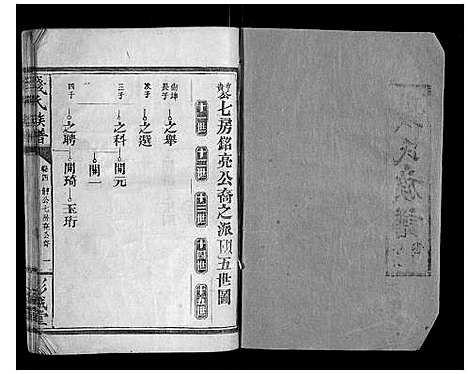 公七房銘亮公裔之派圖五世圖
十一世 十二世 十三世 十四世 十五世
長子 之舉
次子 之選
三子 之科 開元
開一
四子 之聘 開琦 玉珩
氏族譜
卷四 公七房亮公裔 一
彭城堂
氏族譜